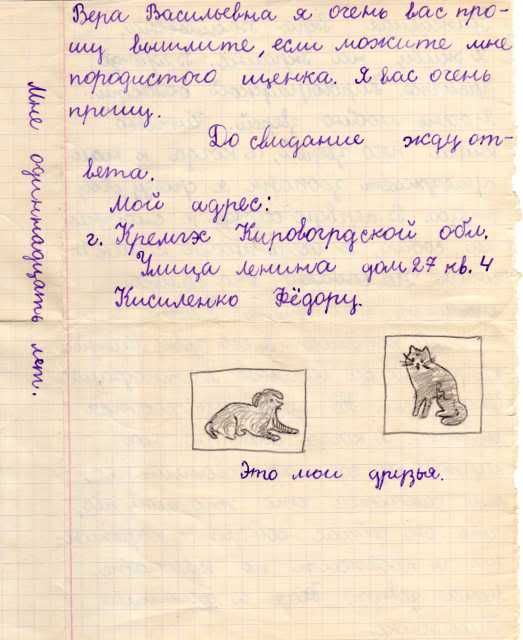 Вера Васильевна я очень вас про-
шу вышлите, если можите мне
породистого щенка. Я вас очень
прошу.
До свидание жду от-
вета.
Мой адрес:
г. Кремгэх Кировоградской обл.
Улица ленина дом 27 кв. 4
Кисиленко Фёдору.
Это мои друзья.
Мне одиннадцать лет.